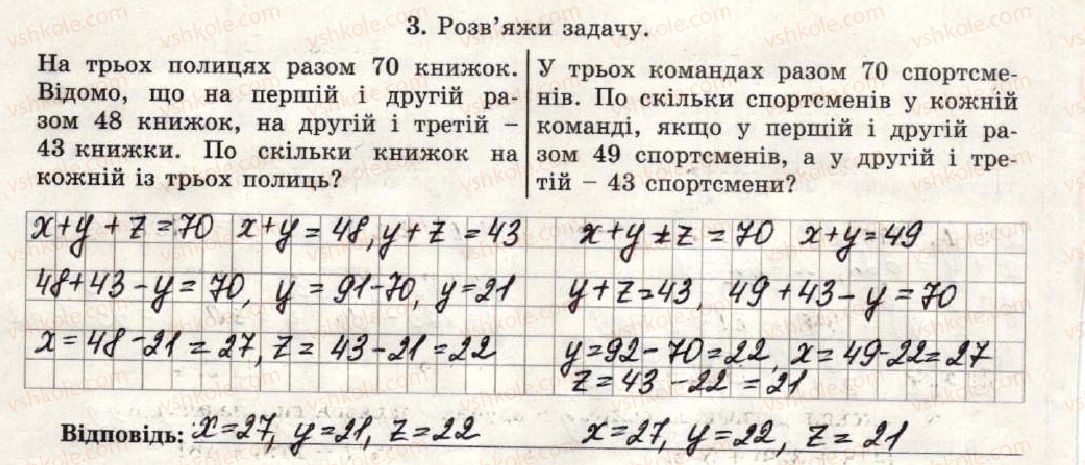 3. Розв’яжи задачу.
На трьох полицях разом 70 книжок.
Відомо, що на першій і другій ра-
зом 48 книжок, на другій і третій –
43 книжки. По скільки книжок на
кожній із трьох полиць?
У трьох командах разом 70 спортсме-
нів. По скільки спортсменів у кожній
команді, якщо у першій і другій ра-
зом 49 спортсменів, а у другій і тре-
тій – 43 спортсмени?
x+y+z=70 x+y=48, y+z=43
48+43-y=70, y=91-70, y=21
x=48-21=27, z=43-21=22
x+y+z=70 x+y=49
y+z=43, 49+43-y=70
y=92-70=22, x=49-22=27
z=43-22=21
Відповідь: x=27, y=21, z=22 x=27, y=22, z=21
vshkole.com